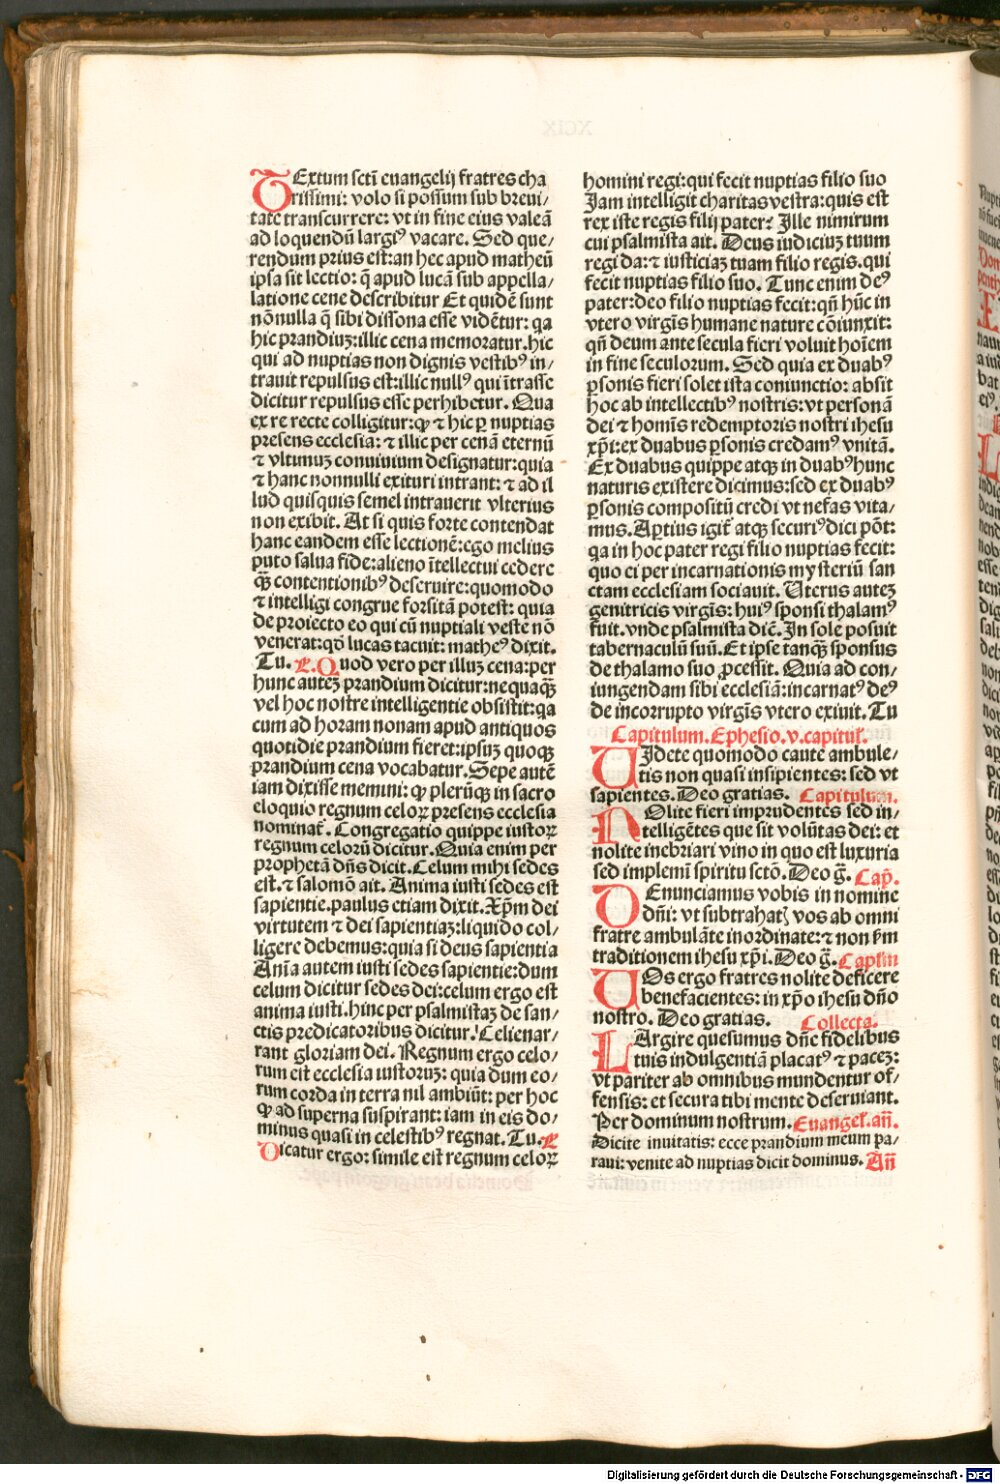 TExtum sctī euangelij fratres cha
rissimi: volo si possum sub breui/
tate transcurrere: vt in fine eius valeā
ad loquendū largiꝰ vacare. Sed que/
rendum prius est: an hec apud matheū
ipsa sit lectio: q̄ apud lucā sub appella/
latione cene describitur Et quidē sunt
nōnulla q̄ sibi dissona esse vidētur: qa
hic prandiuꝫ: illic cena memoratur. hic
qui ad nuptias non dignis vestibꝰ in/
trauit repulsus est: illic nullꝰ qui ītrasse
dicitur repulsus esse perhibetur. Qua
ex re recte colligitur: ꝙ ⁊ hic ꝑ nuptias
presens ecclesia: ⁊ illic per cenā eternū
⁊ vltimuꝫ conuiuium designatur: quia
⁊ hanc nonnulli exituri intrant: ⁊ ad il
lud quisquis semel intrauerit vlterius
non exibit. At si quis forte contendat
hanc eandem esse lectionē: ego melius
puto salua fide: alieno ītellectui cedere
qꝫ̄ contentionibꝰ deseruire: quomodo
⁊ intelligi congrue forsitā potest: quia
de proiecto eo qui cū nuptiali veste nō
venerat: qd̄ lucas tacuit: matheꝰ dixit.
Tu. R. Quod vero per illuꝫ cena: per
hunc auteꝫ prandium dicitur: nequaqꝫ̄
vel hoc nostre intelligentie obsistit: qa
cum ad horam nonam apud antiquos
quotidie prandium fieret: ipsuꝫ quoqꝫ
prandium cena vocabatur. Sepe autē
iam dixisse memini: ꝙ plerūqꝫ in sacro
eloquio regnum celoꝝ presens ecclesia
nominat̄. Congregatio quippe iustoꝝ
regnum celorū dicitur. Quia enim per
prophetā dn̄s dicit. Celum mihi sedes
est. ⁊ salomō ait. Anima iusti sedes est
sapientie. paulus etiam dixit. Xp̄m dei
virtutem ⁊ dei sapientiaꝫ: liquido col/
ligere debemus: quia si deus sapientia
Anīa autem iusti sedes sapientie: dum
celum dicitur sedes dei: celum ergo est
anima iusti. hinc per psalmistaꝫ de san/
ctis predicatoribus dicitur. Celi enar/
rant gloriam dei. Regnum ergo celo/
rum est ecclesia iustoruꝫ: quia dum eo/
rum corda in terra nil ambiūt: per hoc
ꝙ ad superna suspirant: iam in eis do/
minus quasi in celestibꝰ regnat. Tu. R
Dicatur ergo: simile est regnum celoꝝ
homini regi: qui fecit nuptias filio suo
Jam intelligit charitas vestra: quis est
rex iste regis filij pater? Ille nimirum
cui psalmista ait. Deus iudiciuꝫ tuum
regi da: ⁊ iusticiaꝫ tuam filio regis. qui
fecit nuptias filio suo. Tunc enim deꝰ
pater: deo filio nuptias fecit: qn̄ hūc in
vtero virgīs humane nature cōiunxit:
qn̄ deum ante secula fieri voluit hoīem
in fine seculorum. Sed quia ex duabꝰ
ꝑsonis fieri solet ista coniunctio: absit
hoc ab intellectibꝰ nostris: vt personā
dei ⁊ homīs redemptoris nostri ihesu
xp̄i: ex duabus ꝑsonis credamꝰ vnitā.
Ex duabus quippe atqꝫ in duabꝰ hunc
naturis existere dicimus: sed ex duabꝰ
ꝑsonis compositū credi vt nefas vita/
mus. Aꝑtius igit̄ atqꝫ securiꝰ dici pōt:
qa in hoc pater regi filio nuptias fecit:
quo ei per incarnationis mysteriū san
ctam ecclesiam sociauit. Uterus auteꝫ
genitricis virgīs: huiꝰ sponsi thalamꝰ
fuit. vnde psalmista dic̄. In sole posuit
tabernaculū suū. Et ipse tanqꝫ̄ sponsus
de thalamo suo ꝓcessit. Quia ad con/
iungendam sibi ecclesiā: incarnatꝰ deꝰ
de incorrupto virgīs vtero exiuit. Tu
Capitulum. Ephesio. v. capitul̄.
UIdete quomodo caute ambule/
tis non quasi insipientes: sed vt
sapientes. Deo gratias. Capitulum.
NOlite fieri imprudentes sed in/
telligētes que sit volūtas dei: et
nolite inebriari vino in quo est luxuria
sed implemī spiritu sctō. Deo ḡ. Cap̄.
DEnunciamus vobis in nomine
dn̄i: vt subtrahatꝭ vos ab omni
fratre ambulāte inordinate: ⁊ non ẜm
traditionem ihesu xp̄i. Deo ḡ. Caplm
UOs ergo fratres nolite deficere
benefacientes: in xp̄o ihesu dn̄o
nostro. Deo gratias. Collecta.
LArgire quesumus dn̄e fidelibus
tuis indulgentiā placatꝰ ⁊ paceꝫ:
vt pariter ab omnibus mundentur of/
fensis: et secura tibi mente deseruiant.
Per dominum nostrum. Euangel̄. an̄.
Dicite inuitatis: ecce prandium meum pa/
raui: venite ad nuptias dicit dominus. An̄
Digitalisierung gefördert durch die Deutsche Forschungsgemeinschaft - DFG